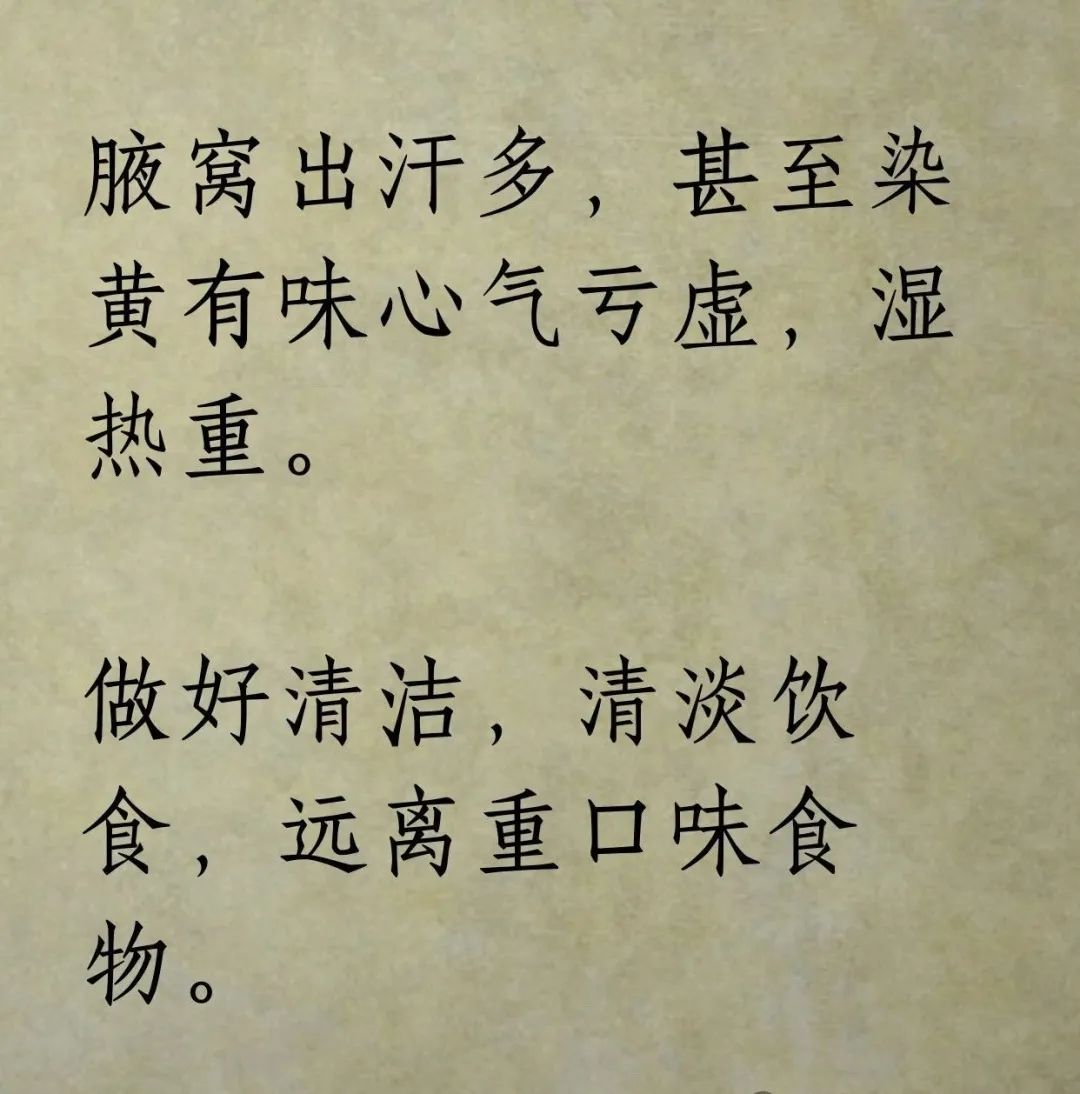 腋窝出汗多，甚至染
黄有味心气亏虚，湿
热重。
做好清洁，清淡饮
食，远离重口味食
物。